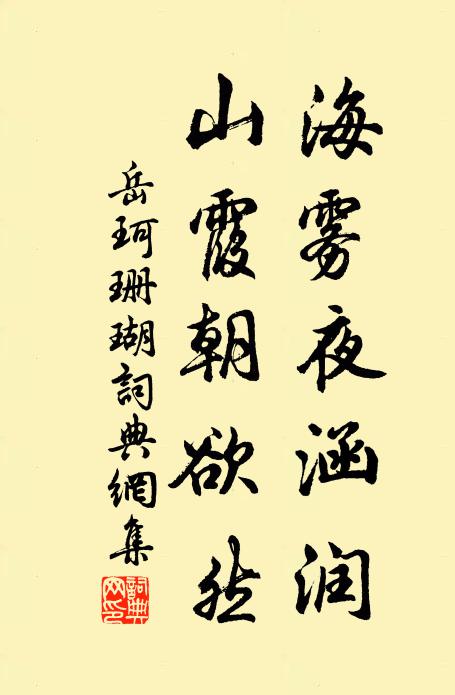 海雾夜涵润
山霞朝欲然
岳珂珊瑚詞典網集
詞典網印